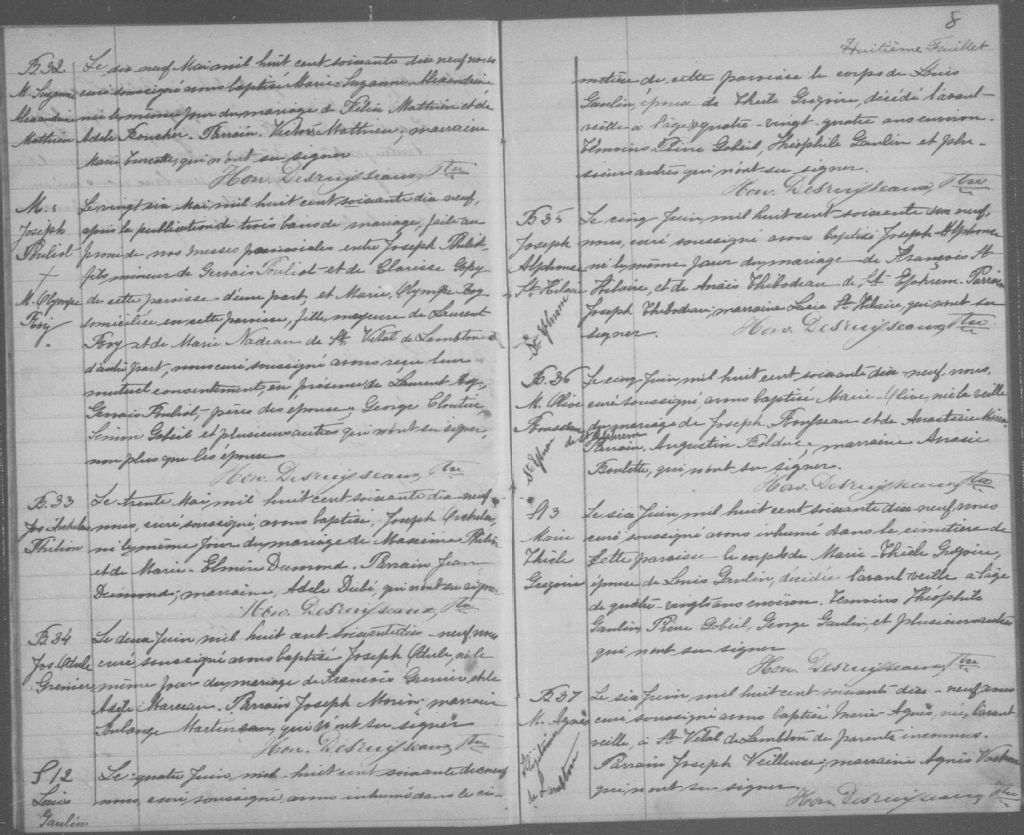 B. 32
M. Suzanne
Alexandrine
Mathieu
Le dix neuf Mai mil huit cent soixante dix neuf nous
curé soussigné avons baptisé Marie Suzanne Alexandrine
née le même jour du mariage de Félix Mathieu et de
Adèle Boucher. Parrain Victor Mathieu, marraine
Marie qui n'ont su signer
Hon. Desruisseaux, Ptre
M. 5
Joseph
Pouliot
+
M. Olympe
Roy
Le vingt six Mai mil huit cent soixante dix neuf,
après la publication de trois bans de mariage, faite au
prône de nos messes paroissiales entre Joseph Pouliot
fils, mineur de Gervais Pouliot et de Clarisse
de cette paroisse d'une part, et Marie, Olympe Roy
domiciliée en cette paroisse, fille majeure de Laurent
Roy et de Marie Nadeau de St. Vital de Lambton
d'autre part, nous curé soussigné avons reçu leur
mutuel consentement, en présence de Laurent Roy,
Gervais Pouliot, pères des époux, George Cloutier,
Simon Gobeil et plusieurs autres qui n'ont su signer,
non plus que les époux
Hon. Desruisseaux, Ptre
B. 33
Jos Archelas
Philion
Le trente Mai, mil huit cent soixante dix-neuf
nous, curé soussigné, avons baptisé, Joseph Archelas,
né le même jour du mariage de Maxime Philion
et de Marie-Elmire Dumond. Parrain Jean
Dumond; marraine, Adèle Dubé, qui n'ont su signer
Hon. Desruisseaux, Ptre
B. 34
Jos Adule
Grenier
Le deux Juin mil huit cent soixante dix-neuf nous
curé soussigné avons baptisé Joseph Adule, né le
même jour du mariage de Francois Grenier, et de
Adèle Marceau. Parrain Joseph Morin, marraine
Eulange Martineau, qui n'ont su signer
Hon. Desruisseaux Ptre
S 12
Louis
Gaulin
Le quatre Juin, mil huit cent soixante dix neuf
nous, curé soussigné, avons inhumé dans le ci-
8
Huitième Feuillet
metière de cette paroisse le corps de Louis
Gaulin, époux de Thècle Grégoire, décédé l'avant-
veille à l'âge quatre-vingt quatre ans environ.
Témoins Pierre Gobeil, Théophile Gaulin et plu-
sieurs autres qui n'ont su signer.
Hon. Desruisseaux, Ptre
B. 35
Joseph
Alphonse
St Hilaire
St. Ephrem
Le cinq Juin, mil huit cent soixante dix neuf,
nous, curé soussigné avons baptisé Joseph Alphonse
né le même jour du mariage de François St
Hilaire, et de Anais Thibodeau de St Ephrem. Parrain
Joseph Thibodeau, marraine Lucie St Hilaire, qui n'ont su
signer.
Hon. Desruisseaux, Ptre
B. 36
M. Olive
Rousseau
St Ephrem
Le cinq Juin, mil huit cent soixante dix-neuf, nous,
curé soussigné, avons baptisé Marie-Olive, née la veille
du mariage de Joseph Rousseau et de Anastasie Morin
de St Ephrem
Parrain, Augustin Bolduc, marraine Anasie
Roulette, qui, n'ont su signer.
Hon. Desruisseaux, Ptre
S 13
Marie
Thècle
Grégoire
Le six Juin, mil huit cent soixante dix neuf, nous
curé soussigné avons inhumé dans le cimetière de
cette paroisse le corps de Marie-Thècle Grégoire,
épouse de Louis Gaulin, décédée l'avant veille a l'âge
de quatre-vingts ans environ. Temoins Théophile
Gaulin, Pierre Gobeil, George Gaulin, et plusieurs autres
qui n'ont su signer
Hon. Desruisseaux, Ptre
B. 37
M. Agnès
Illégitime
de Lambton
Le six Juin, mil huit cent soixante dix-neuf nous
curé soussigné avons baptisé Marie-Agnès, née, l'avant
veille, à St Vital de Lambton de parents inconnus.
Parrain Joseph Veilleux, marraine Agnès
qui n'ont su signer.
Hon. Desruisseaux, Ptre